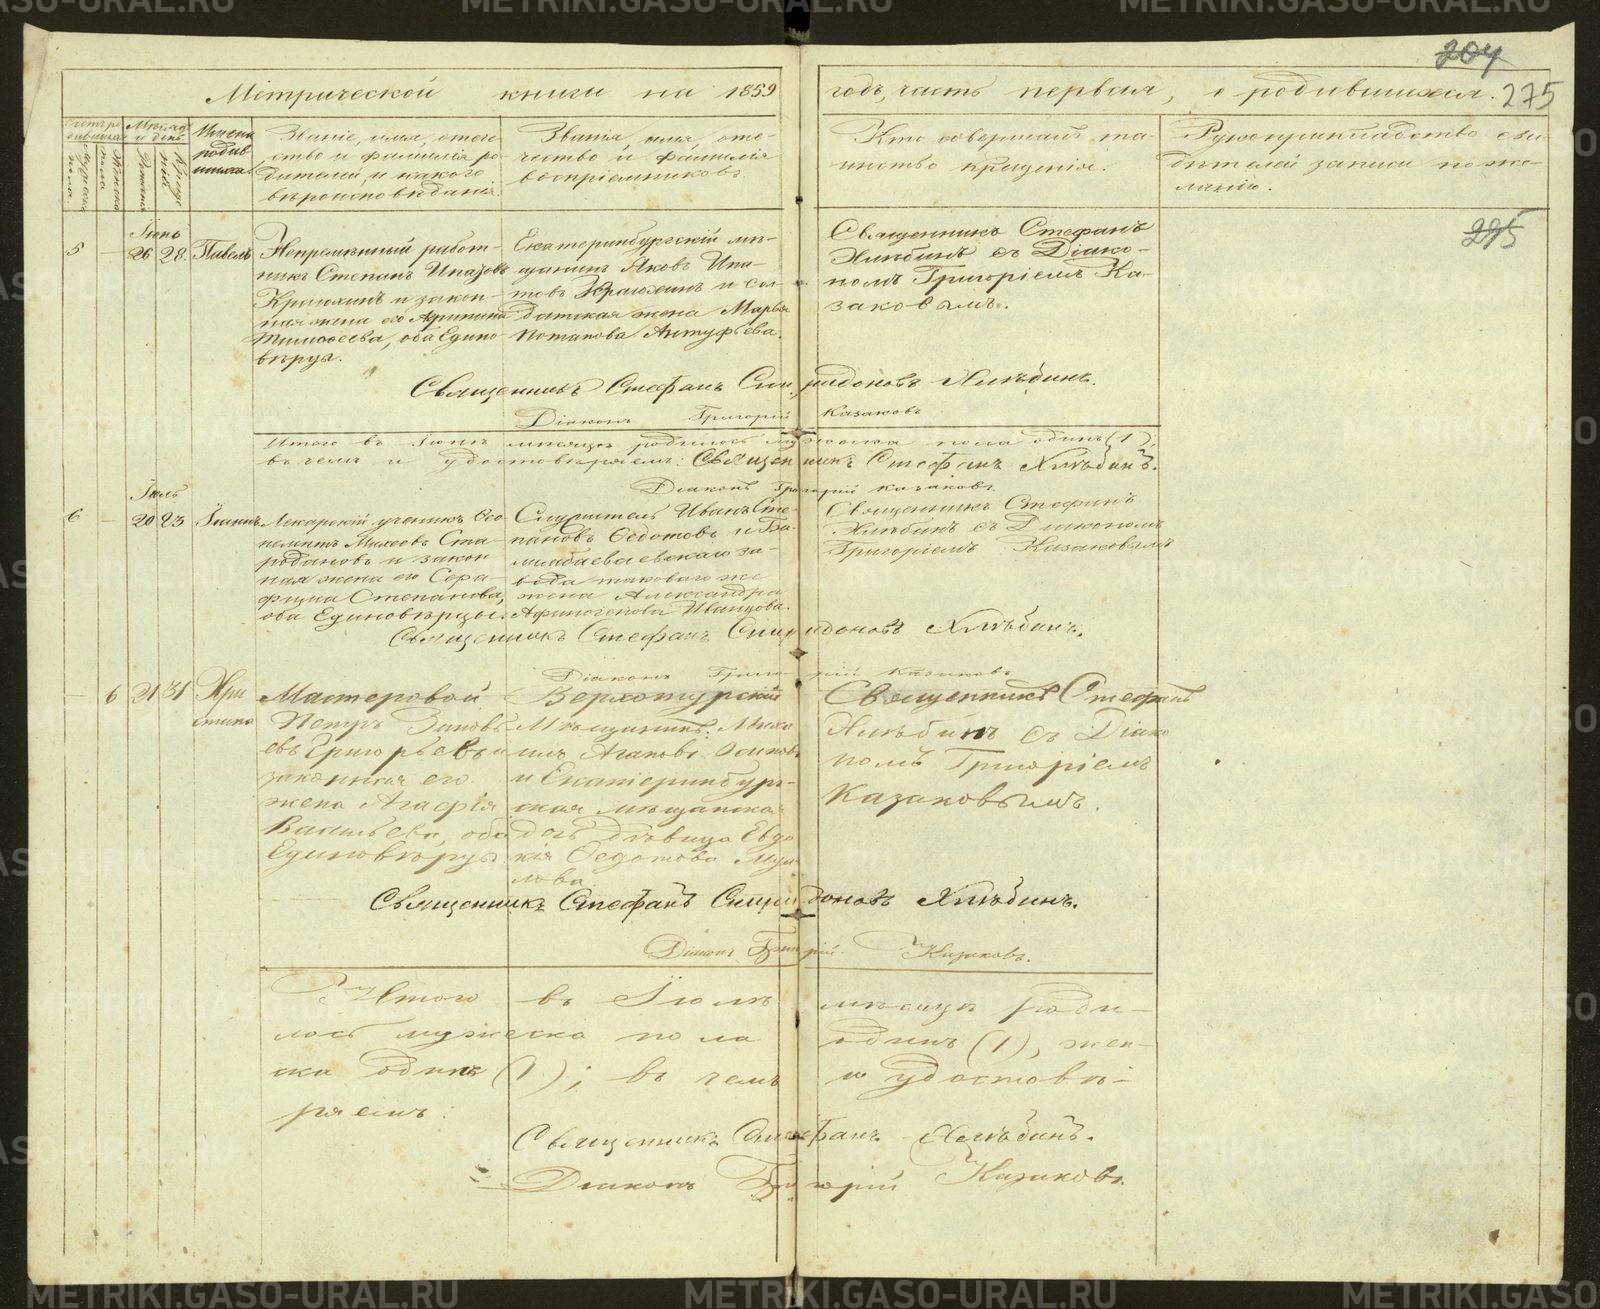 204
Метрической книги на 1859
годъ, часть первая, о родившихся. 275
Счетъ родившихся
Мѣсяцъ и день
Имена родившихся
Мужеска пола
Женска пола
Званіе, имя, отече-
ство и фамилія ро-
дителей, и какого
вѣроисповѣданія.
Званіе, имя, оте-
чество и фамилія
воспріемниковъ.
Кто совершалъ та-
инство крещенія.
Рукоприкладство сви-
дѣтелей записи по же-
ланію.
275
Іюнь
5 — 26 28 Павелъ
Непремѣнный работ-
никъ Степанъ Ипатовъ
и закон-
ная жена его
Тимоѳеева, оба Едино-
вѣрцы.
Екатеринбургскій мѣ-
щанинъ Яковъ Ипа-
товъ и сол-
датская жена Марья
Потапова Антуфьева.
Священникъ Стефанъ
Хлѣбинъ съ Діако-
номъ Григоріемъ Ка-
заковымъ.
Священникъ Стефанъ Спиридоновъ Хлѣбинъ.
Діаконъ Григорій Казаковъ
Итого въ Іюнѣ мѣсяцѣ родилось мужеска пола одинъ (1),
въ чемъ и удостовѣряемъ: Священникъ Стефанъ Хлѣбинъ.
Діаконъ Григорій Казаковъ.
Іюль
6 — 20 23 Іоаннъ
Лекарскій ученикъ
Михеевъ Ста-
родановъ и закон-
ная жена его Сера-
фима Степанова,
оба Единовѣрцы.
Служитель Иванъ Сте-
пановъ Ѳедотовъ и Би-
лимбаевскаго за-
вода таковаго же
жена Александра
Афиногенова Иванцова.
Священникъ Стефанъ
Хлѣбинъ съ Діакономъ
Григоріемъ Казаковымъ
Священникъ Стефанъ Спиридоновъ Хлѣбинъ.
Діаконъ Григорій Казаковъ
— 6 21 31 Хри
стина
Мастеровой
Петръ Заков-
евъ Григорьевъ и
законная его
жена Агафія
Васильева, оба
Единовѣрцы
Верхотурскій
Мѣщанинъ Миха-
илъ Агаповъ Осиповъ
и Екатеринбург-
ская мѣщанская
дочь дѣвица Евдо-
кія Ѳедотова
Священникъ Стефанъ
Хлѣбинъ съ Діако
номъ Григоріемъ
Казаковымъ.
Священникъ Стефанъ Спиридоновъ Хлѣбинъ.
Діаконъ Григорій Казаковъ.
Итого въ Іюлѣ мѣсяцѣ роди-
лось мужеска пола одинъ (1), жен-
ска одинъ (1); въ чемъ и удостовѣ-
ряемъ:
Священникъ Стефанъ Хлѣбинъ.
Діаконъ Григорій Казаковъ.
METRIKI.GASO-URAL.RU